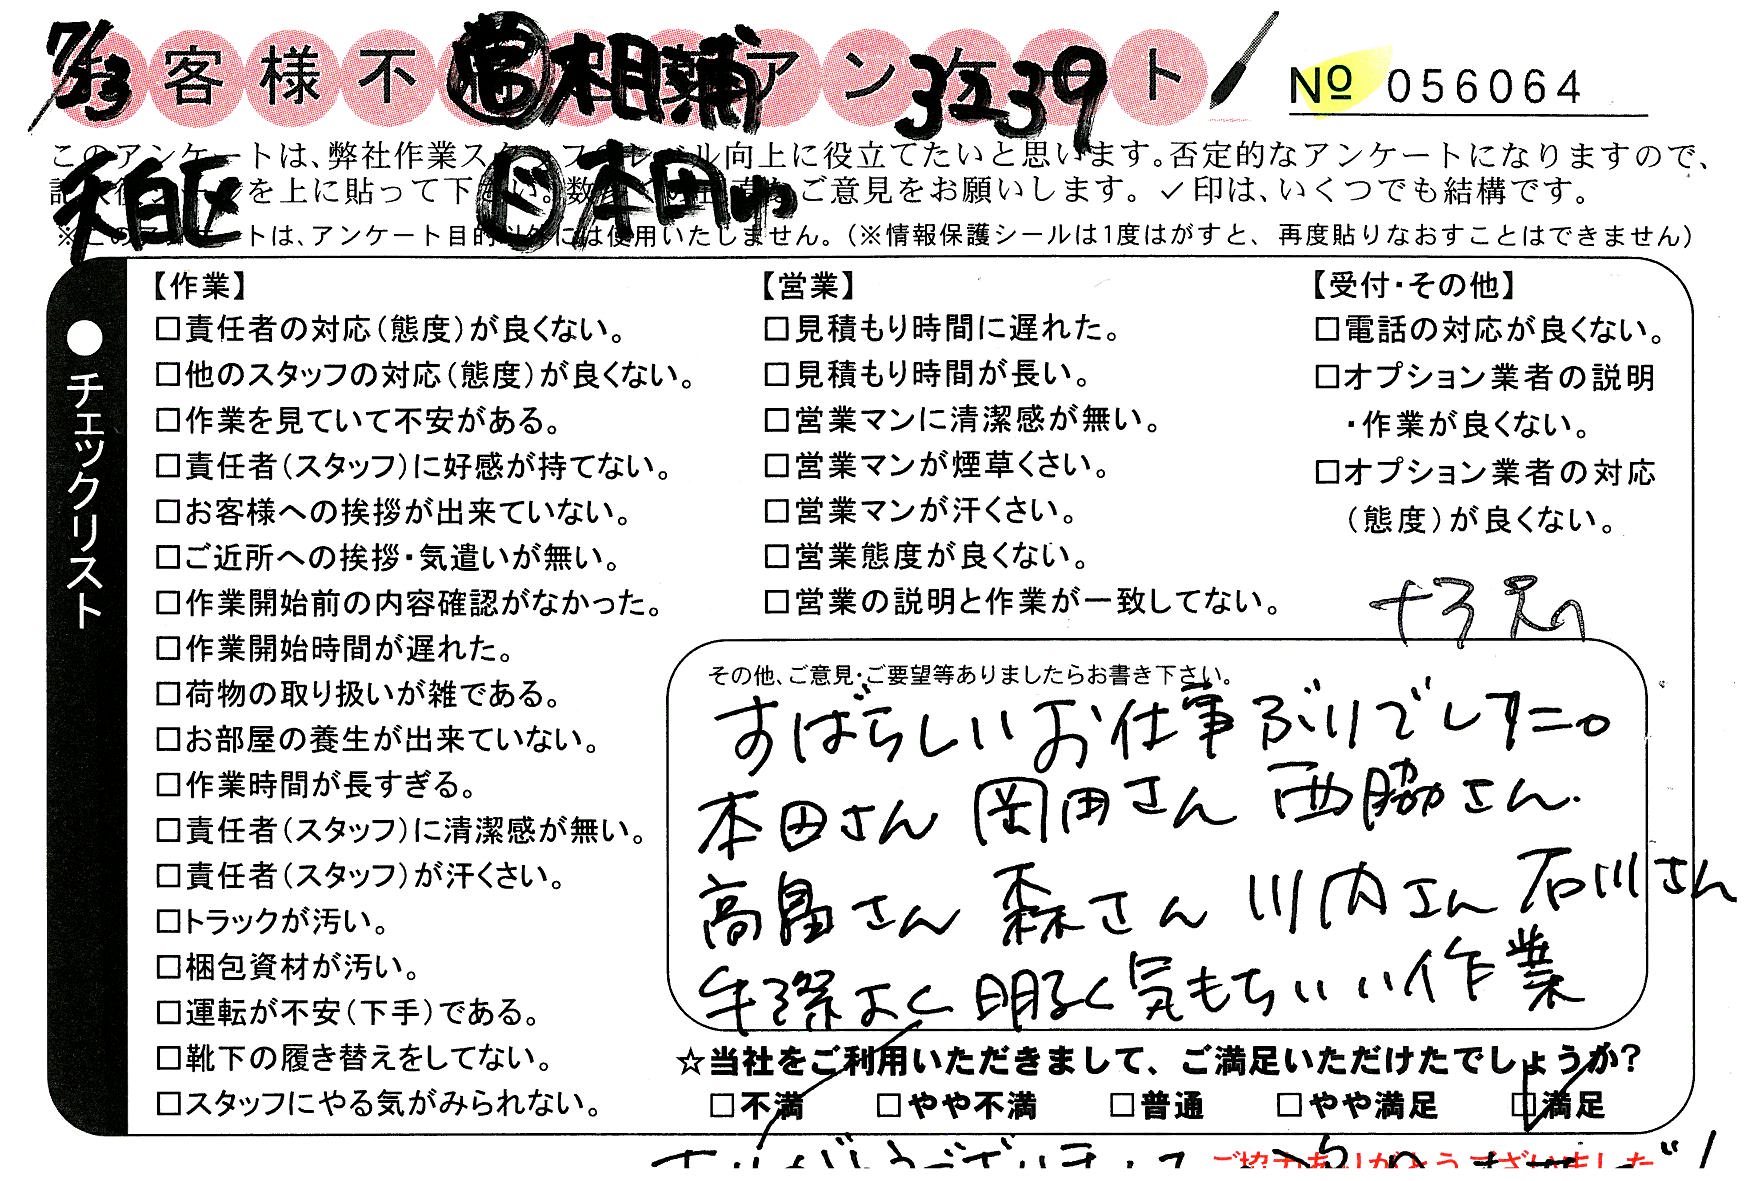 7/13 客様不 営 相蒲 アンケート 3239 № 056064
このアンケートは、弊社作業スタッフのレベル向上に役立てたいと思います。否定的なアンケートになりますので、
を上に貼って下さい。数 ご意見をお願いします。✓印は、いくつでも結構です。
天白区 ド 本田
※このアンケートは、アンケート目的以外には使用いたしません。（※情報保護シールは1度はがすと、再度貼りなおすことはできません）
●チェックリスト
【作業】
□責任者の対応（態度）が良くない。
□他のスタッフの対応（態度）が良くない。
□作業を見ていて不安がある。
□責任者（スタッフ）に好感が持てない。
□お客様への挨拶が出来ていない。
□ご近所への挨拶・気遣いが無い。
□作業開始前の内容確認がなかった。
□作業開始時間が遅れた。
□荷物の取り扱いが雑である。
□お部屋の養生が出来ていない。
□作業時間が長すぎる。
□責任者（スタッフ）に清潔感が無い。
□責任者（スタッフ）が汗くさい。
□トラックが汚い。
□梱包資材が汚い。
□運転が不安（下手）である。
□靴下の履き替えをしてない。
□スタッフにやる気がみられない。
【営業】
□見積もり時間に遅れた。
□見積もり時間が長い。
□営業マンに清潔感が無い。
□営業マンが煙草くさい。
□営業マンが汗くさい。
□営業態度が良くない。
□営業の説明と作業が一致してない。
【受付・その他】
□電話の対応が良くない。
□オプション業者の説明
・作業が良くない。
□オプション業者の対応
（態度）が良くない。
その他、ご意見・ご要望等ありましたらお書き下さい。
すばらしいお仕事ぶりでした。
本田さん 岡田さん 西脇さん.
高畠さん 森さん 川内さん 石川さん
手際よく 明るく気もちいい作業
☆当社をご利用いただきまして、ご満足いただけたでしょうか？
□不満 □やや不満 □普通 □やや満足 ☑満足
ありがとうございました
ご協力ありがとうございました